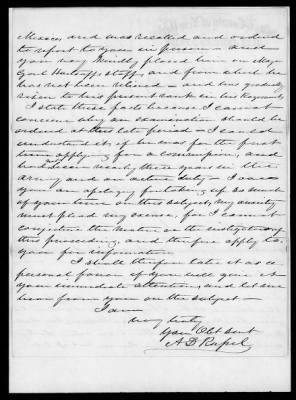 and was recalled and ordered
to report to you in person - and
you very kindly placed him on Maj
Genl Hartsuffs staff, and from which he
has not been relieved - and has gradually
risen to his present rank in his Regiment
I state these facts because I cannot
conceive why an examination should be
ordered at this late period - I could
understand it if he was for the first
time applying for a commission, and
had not been nearly three years in the
army and on active duty - I owe
you an apology for taking up so much
of your time on this subject, my anxiety
must plead my excuse, for I cannot
conjecture the motive or the instigator of
this proceeding, and therefore apply to
you for information
I shall therefore take it as a
personal favor if you will give it
your immediate attention, and let me
hear from you on the subject -
I am
very truly
Your Obt Servt